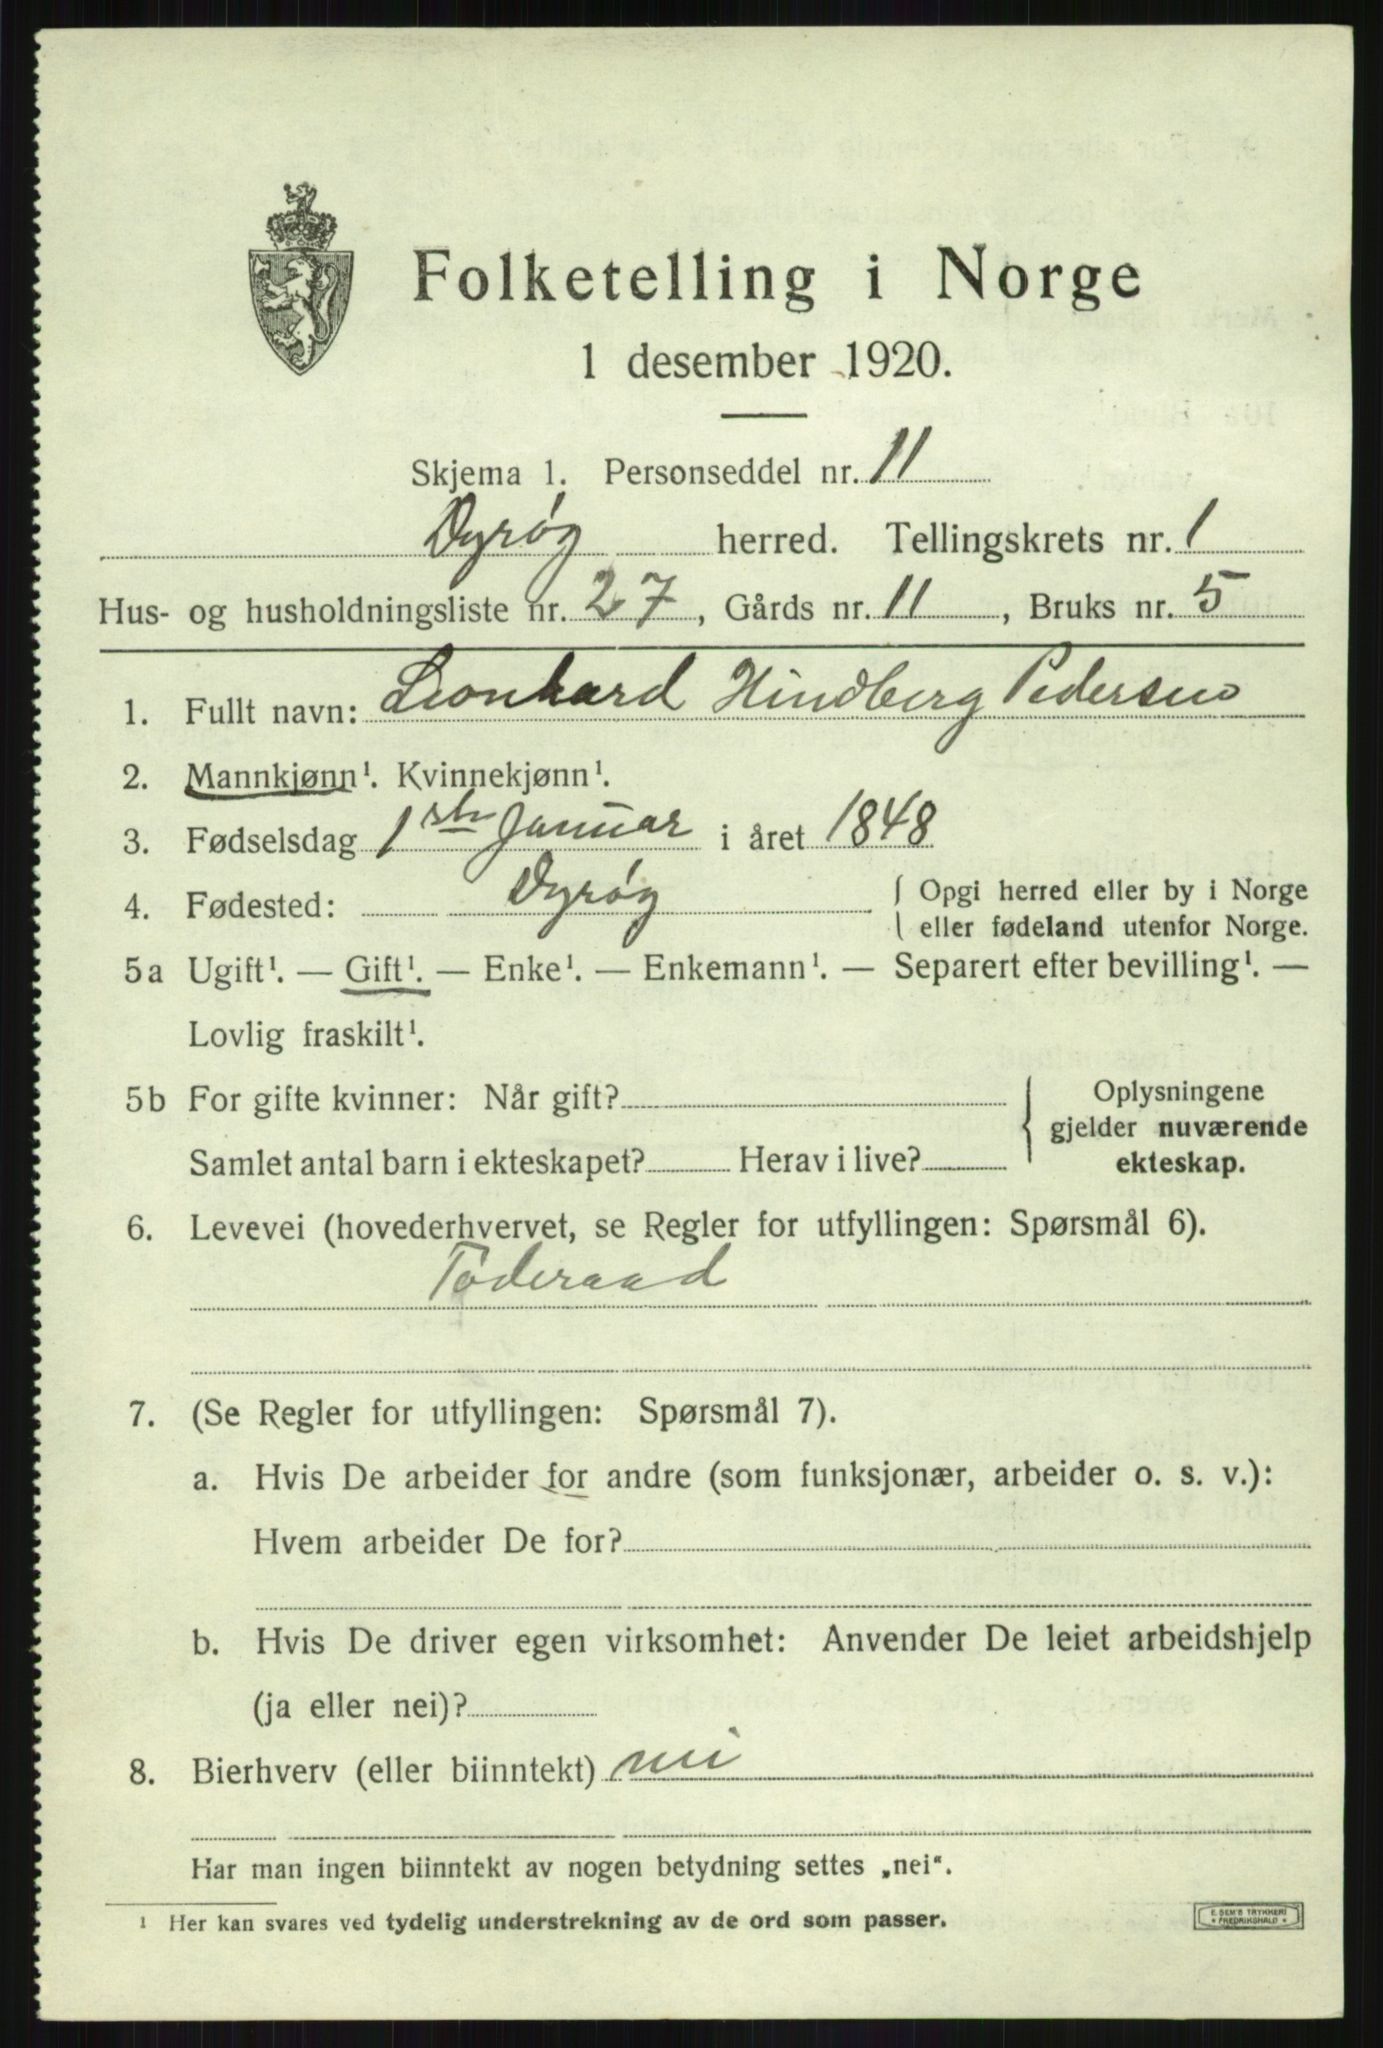 Folketelling i Norge
1 desember 1920.
Skjema 1. Personseddel nr. 11
Dyrøy herred. Tellingskrets nr. 1
Hus- og husholdningsliste nr. 27, Gårds nr. 11, Bruks nr. 5
1. Fullt navn: Leonhard Hindberg Pedersen
2. Mannkjønn¹. Kvinnekjønn¹.
3. Fødselsdag 1ste Januar i året 1848
4. Fødested: Dyrøy { Opgi herred eller by i Norge
eller fødeland utenfor Norge.
5a Ugift¹. — Gift¹. — Enke¹. — Enkemann¹. — Separert efter bevilling¹. —
Lovlig fraskilt¹.
5b For gifte kvinner: Når gift? { Oplysningene
gjelder nuværende
Samlet antal barn i ekteskapet? Herav i live? ekteskap.
6. Levevei (hovederhvervet, se Regler for utfyllingen: Spørsmål 6).
Føderaad
7. (Se Regler for utfyllingen: Spørsmål 7).
a. Hvis De arbeider for andre (som funksjonær, arbeider o. s. v.):
Hvem arbeider De for?
b. Hvis De driver egen virksomhet: Anvender De leiet arbeidshjelp
(ja eller nei)?
8. Bierhverv (eller biinntekt) nei
Har man ingen biinntekt av nogen betydning settes „nei“.
¹ Her kan svares ved tydelig understrekning av de ord som passer.
E. SEM'S TRYKKERI
* FREDRIKSHALD *